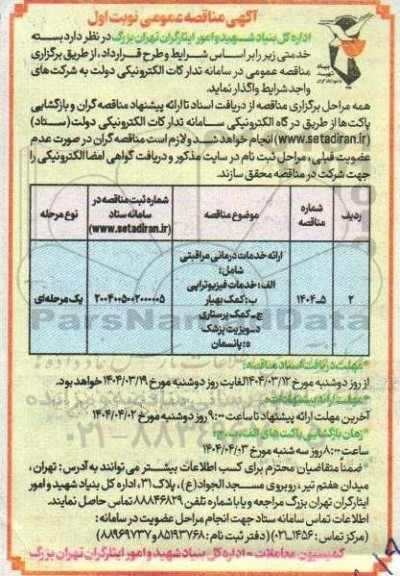 آگهی مناقصه عمومی نوبت اول
اداره کل بنیاد شهید و امور ایثارگران تهران بزرگ در نظر دارد بسته
خدمتی زیر را بر اساس شرایط و طرح قرارداد، از طریق برگزاری
مناقصه عمومی در سامانه تدارکات الکترونیکی دولت به شرکت‌های
واجد شرایط واگذار نماید.
همه مراحل برگزاری مناقصه از دریافت اسناد تا ارائه پیشنهاد مناقصه گران و بازگشایی
پاکت‌ها از طریق درگاه الکترونیکی سامانه تدارکات الکترونیکی دولت (ستاد)
(www.setadiran.ir) انجام خواهد شد و لازم است مناقصه گران در صورت عدم
عضویت قبلی، مراحل ثبت نام در سایت مذکور و دریافت گواهی امضا الکترونیکی را
جهت شرکت در مناقصه محقق سازند.
ردیف
شماره مناقصه
موضوع مناقصه
شماره ثبت مناقصه در
سامانه ستاد
(www.setadiran.ir)
نوع مرحله
۲
۵-۱۴۰۴
ارائه خدمات درمانی مراقبتی
شامل:
الف: خدمات فیزیوتراپی
ب: کمک بهیار
ج- کمک پرستاری
د- ویزیت پزشک
ه: پانسمان
۲۰۰۴۰۰۵۰۰۲۰۰۰۰۰۵
یک مرحله‌ای
*مهلت دریافت اسناد مناقصه:
از روز دوشنبه مورخ ۱۴۰۴/۰۳/۱۲ لغایت روز دوشنبه مورخ ۱۴۰۴/۰۳/۱۹ خواهد بود.
*مهلت ارائه پیشنهادات:
آخرین مهلت ارائه پیشنهاد تا ساعت ۹:۰۰ روز دوشنبه مورخ ۱۴۰۴/۰۴/۰۲
*زمان بازگشایی پاکت‌های الف، ب، ج:
ساعت ۸:۰۰ روز سه شنبه مورخ ۱۴۰۴/۰۴/۰۳
*ضمنا متقاضیان محترم برای کسب اطلاعات بیشتر می توانند به آدرس: تهران،
میدان هفتم تیر، روبروی مسجد الجواد (ع)، پلاک ۳۱، اداره کل بنیاد شهید و امور
ایثارگران تهران بزرگ مراجعه و یا با شماره تلفن ۸۸۸۴۶۸۲۹ تماس حاصل نمایند.
اطلاعات تماس سامانه ستاد جهت انجام مراحل عضویت در سامانه:
(مرکز تماس: ۱۴۵۶-۰۲۱) (دفتر ثبت نام: ۸۵۱۹۳۷۶۸ و ۸۸۹۶۹۷۳۷)
کمیسیون معاملات - اداره کل بنیاد شهید و امور ایثارگران تهران بزرگ
ParsNamadData
۰۲۱-۸۸۳۴۹۶۷۰-۵